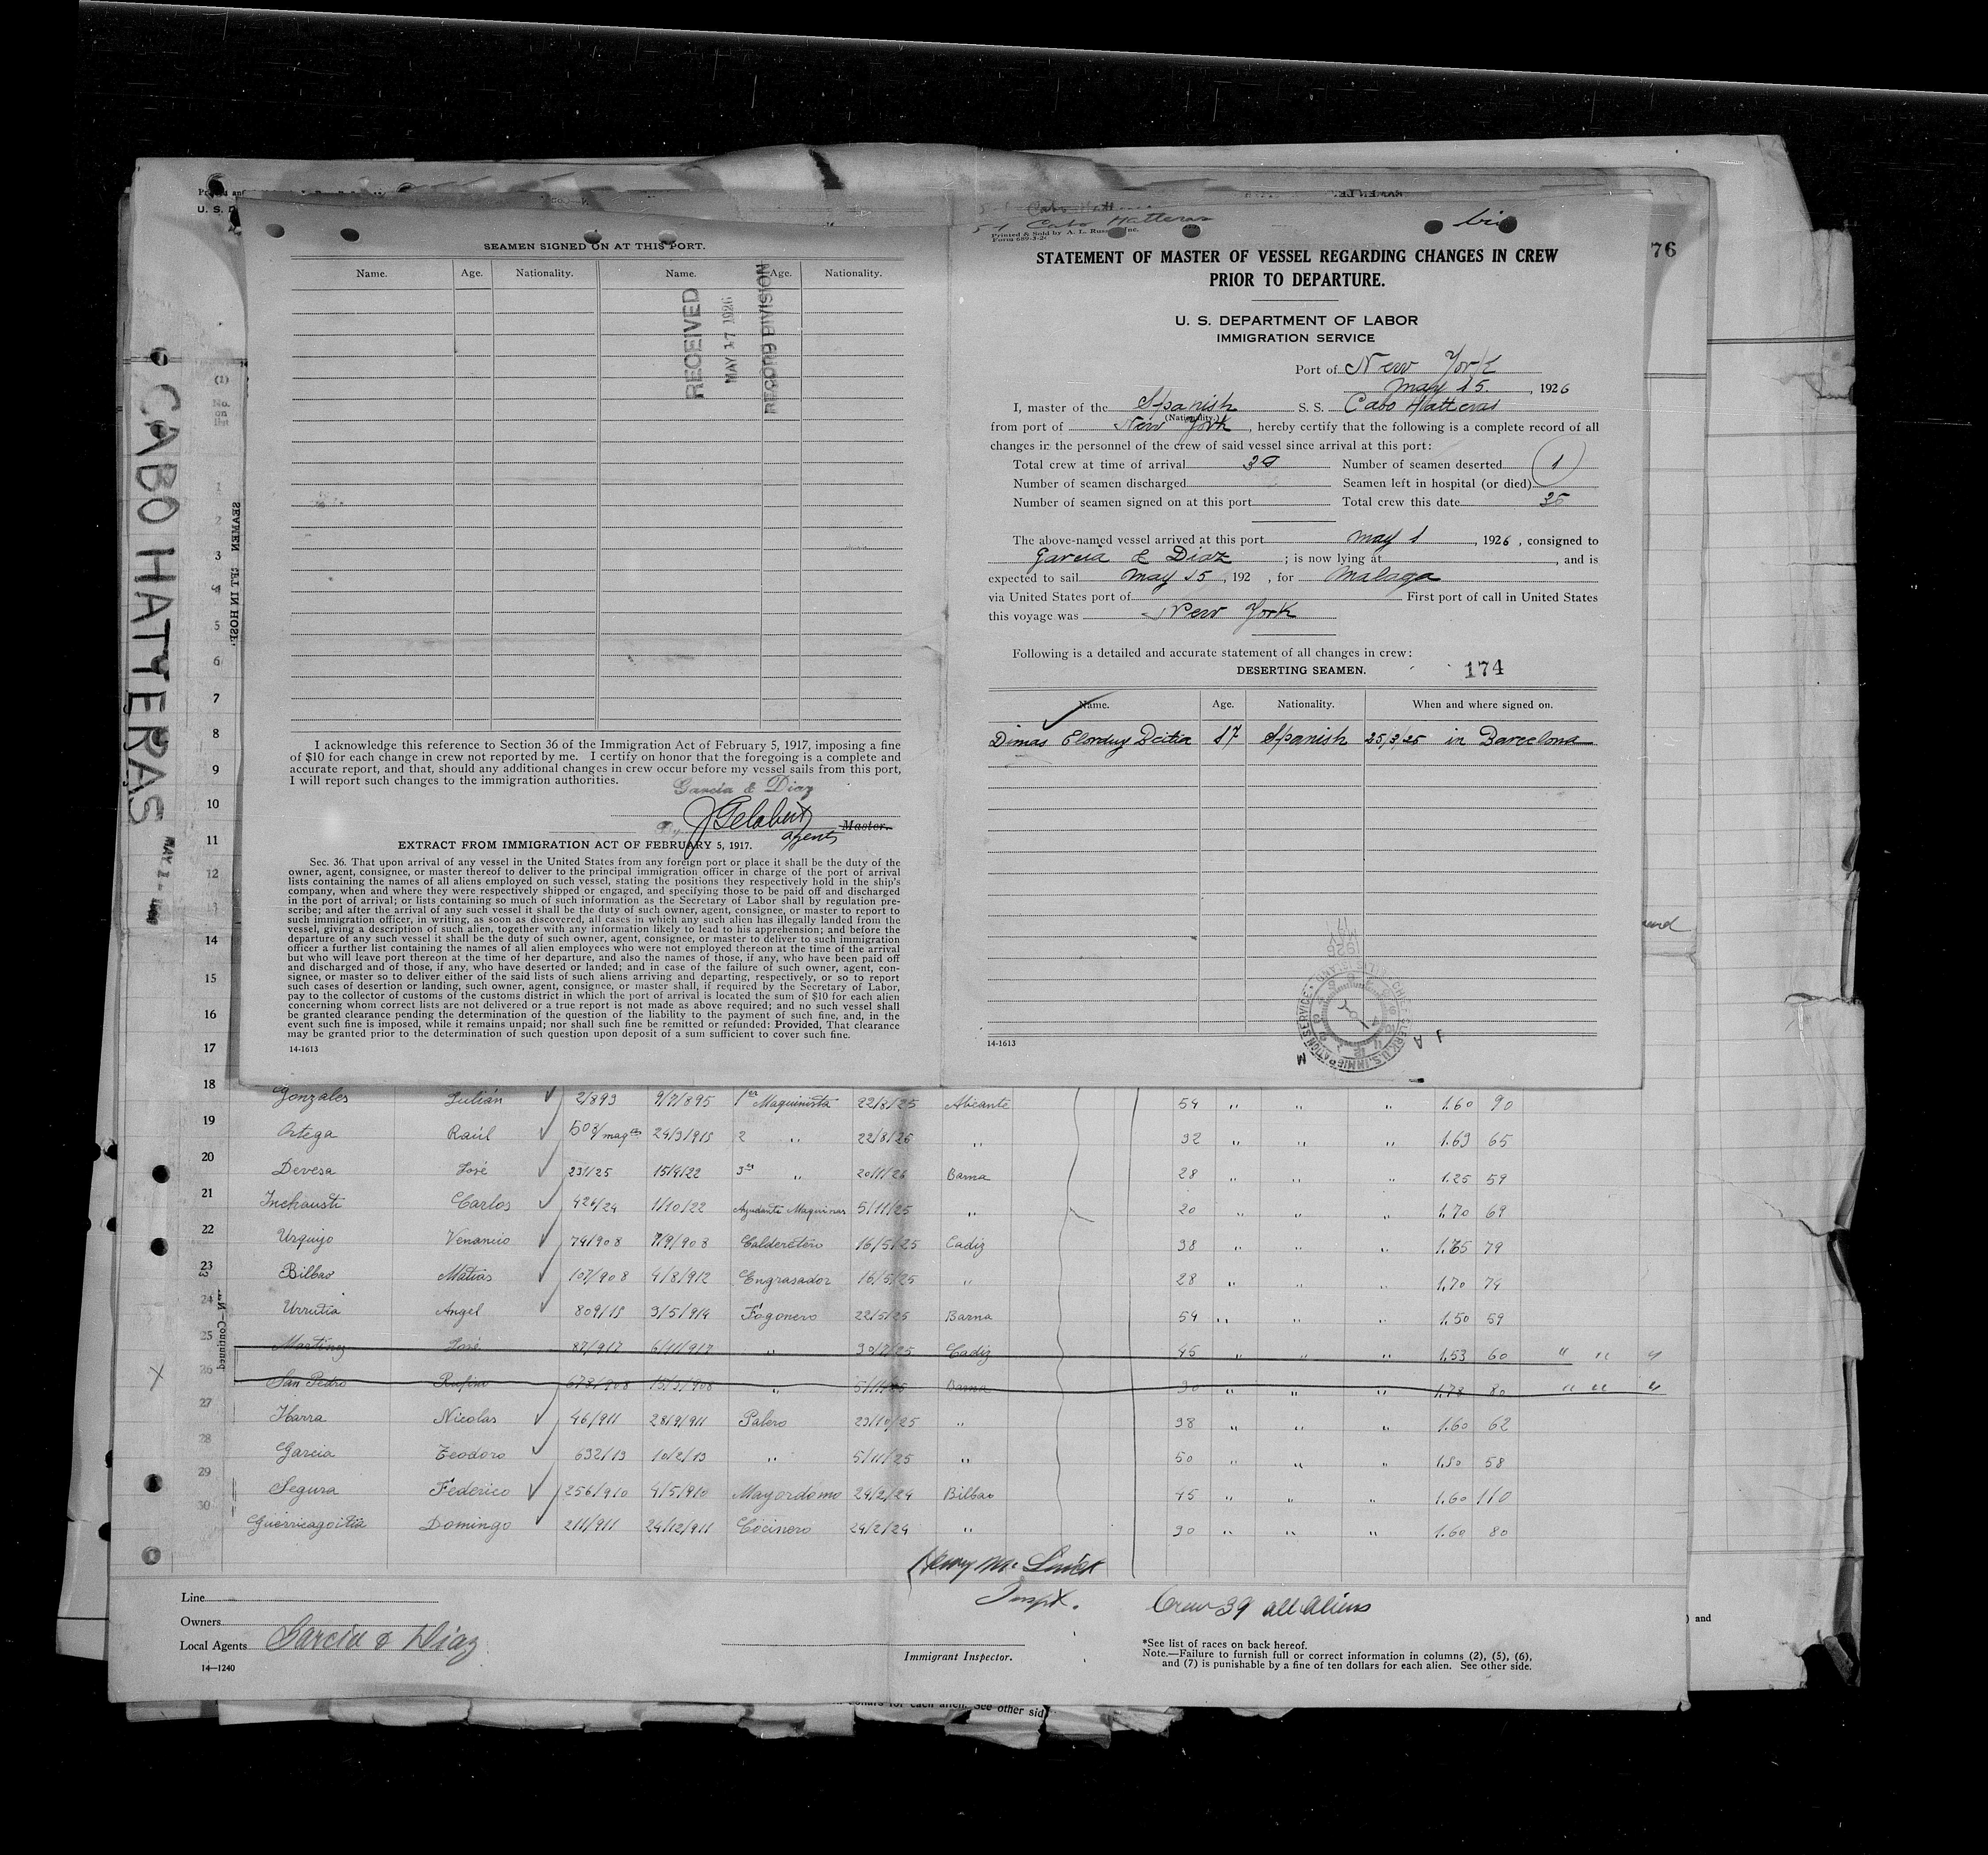 SEAMEN SIGNED ON AT THIS PORT.
Name. Age. Nationality. Name. Age. Nationality.
RECEIVED
MAY 17 1926
RECORD DIVISION
I acknowledge this reference to Section 36 of the Immigration Act of February 5, 1917, imposing a fine
of $10 for each change in crew not reported by me. I certify on honor that the foregoing is a complete and
accurate report, and that, should any additional changes in crew occur before my vessel sails from this port,
I will report such changes to the immigration authorities.
Garcia & Diaz
By J Gelabert Master.
agents
EXTRACT FROM IMMIGRATION ACT OF FEBRUARY 5, 1917.
Sec. 36. That upon arrival of any vessel in the United States from any foreign port or place it shall be the duty of the
owner, agent, consignee, or master thereof to deliver to the principal immigration officer in charge of the port of arrival
lists containing the names of all aliens employed on such vessel, stating the positions they respectively hold in the ship's
company, when and where they were respectively shipped or engaged, and specifying those to be paid off and discharged
in the port of arrival; or lists containing so much of such information as the Secretary of Labor shall by regulation pre-
scribe; and after the arrival of any such vessel it shall be the duty of such owner, agent, consignee, or master to report to
such immigration officer, in writing, as soon as discovered, all cases in which any such alien has illegally landed from the
vessel, giving a description of such alien, together with any information likely to lead to his apprehension; and before the
departure of any such vessel it shall be the duty of such owner, agent, consignee, or master to deliver to such immigration
officer a further list containing the names of all alien employees who were not employed thereon at the time of the arrival
but who will leave port thereon at the time of her departure, and also the names of those, if any, who have been paid off
and discharged and of those, if any, who have deserted or landed; and in case of the failure of such owner, agent, con-
signee, or master so to deliver either of the said lists of such aliens arriving and departing, respectively, or so to report
such cases of desertion or landing, such owner, agent, consignee, or master shall, if required by the Secretary of Labor,
pay to the collector of customs of the customs district in which the port of arrival is located the sum of $10 for each alien
concerning whom correct lists are not delivered or a true report is not made as above required; and no such vessel shall
be granted clearance pending the determination of the question of the liability to the payment of such fine, and, in the
event such fine is imposed, while it remains unpaid; nor shall such fine be remitted or refunded: Provided, That clearance
may be granted prior to the determination of such question upon deposit of a sum sufficient to cover such fine.
14-1613
Cabo Hatteras
Printed & Sold by A. L. Inc.
76
STATEMENT OF MASTER OF VESSEL REGARDING CHANGES IN CREW
PRIOR TO DEPARTURE.
U. S. DEPARTMENT OF LABOR
IMMIGRATION SERVICE
Port of New York
May 15, 1926
I, master of the Spanish S. S. Cabo Hatteras
(Nationality.)
from port of New York, hereby certify that the following is a complete record of all
changes in the personnel of the crew of said vessel since arrival at this port:
Total crew at time of arrival 39 Number of seamen deserted 1
Number of seamen discharged Seamen left in hospital (or died)
Number of seamen signed on at this port Total crew this date 35
The above-named vessel arrived at this port May 1, 1926, consigned to
Garcia & Diaz; is now lying at , and is
expected to sail May 15, 192 , for Malaga
via United States port of First port of call in United States
this voyage was New York
Following is a detailed and accurate statement of all changes in crew:
DESERTING SEAMEN. 174
Name. Age. Nationality. When and where signed on.
Dimas Elorduy 17 Spanish 25/3/25 in Barcelona
14-1613
CABO HATTERAS
MAY 1
18 Gonzales Julián 2/893 9/7/895 1er Maquinista 22/8/25 Alicante 54 " " " 1.60 90
19 Ortega Raúl 24/9/915 2 " 22/8/25 " 32 " " " 1.69 65
20 Devesa José 231/25 15/4/22 3er " 20/1/26 Barna 28 " " " 1.25 59
21 Inchausti Carlos 426/24 1/10/22 Ayudante Maquinas 5/11/25 " 20 " " " 1.70 69
22 Urquijo Venancio 74/908 7/9/908 Calderetero 16/5/25 Cadiz 38 " " " 1.65 79
23 Bilbao Matias 107/908 4/8/912 Engrasador 16/5/25 " 28 " " " 1.70 74
24 Urrutia Angel 809/15 3/5/914 Fogonero 22/5/25 Barna 54 " " " 1.50 59
25 Martinez José 87/917 6/11/917 " 30/7/25 Cadiz 45 " " " 1.53 60 " " "
26 San Pedro Rufino 678/908 " 5/11/25 Barna 30 " " " 1.78 80 " " "
27 Ibarra Nicolas 46/911 28/9/911 Palero 23/10/25 " 38 " " " 1.60 62
28 Garcia Teodoro 692/19 10/2/19 " 5/11/25 " 50 " " " 1.50 58
29 Segura Federico 256/910 4/5/910 Mayordomo 24/2/24 Bilbao 45 " " " 1.60 110
30 Guerricagoitia Domingo 211/911 24/12/911 Cocinero 24/2/24 " 30 " " " 1.60 80
Inspt.
Crew 39 all aliens
Line
Owners
Local Agents Garcia & Diaz
14-1240
Immigrant Inspector.
*See list of races on back hereof.
Note.—Failure to furnish full or correct information in columns (2), (5), (6),
and (7) is punishable by a fine of ten dollars for each alien. See other side.